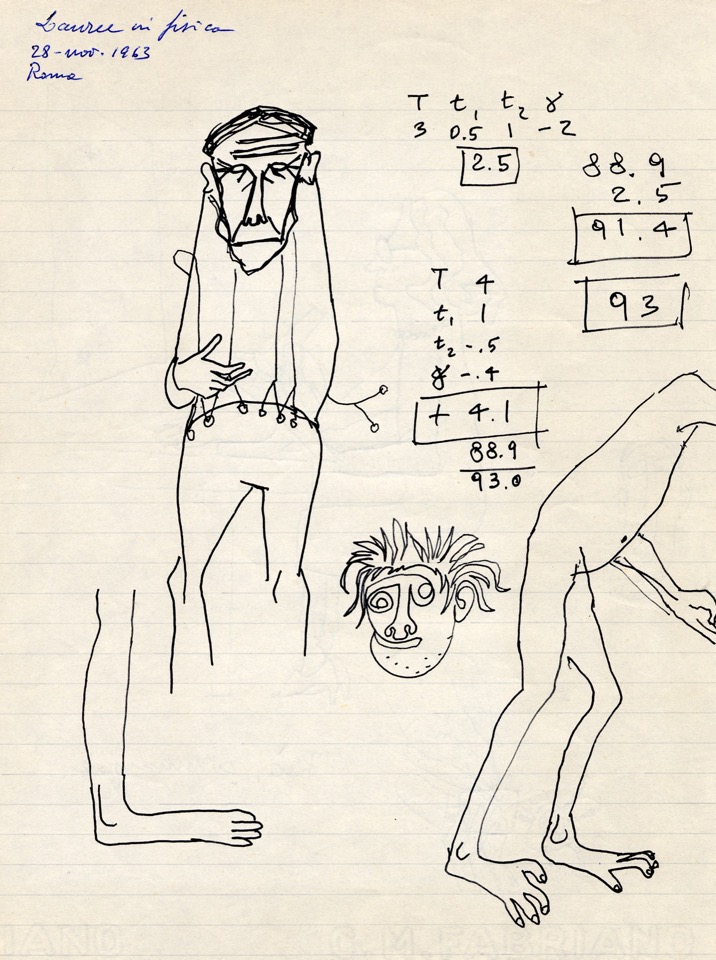 Lauree in fisica
28-nov. 1963
Roma
T t₁ t₂ γ
3 0.5 1 -2
2.5
88.9
2.5
91.4
93
T 4
t₁ 1
t₂ -.5
γ -.4
+ 4.1
88.9
93.0
IANO C.M.FABRIANO